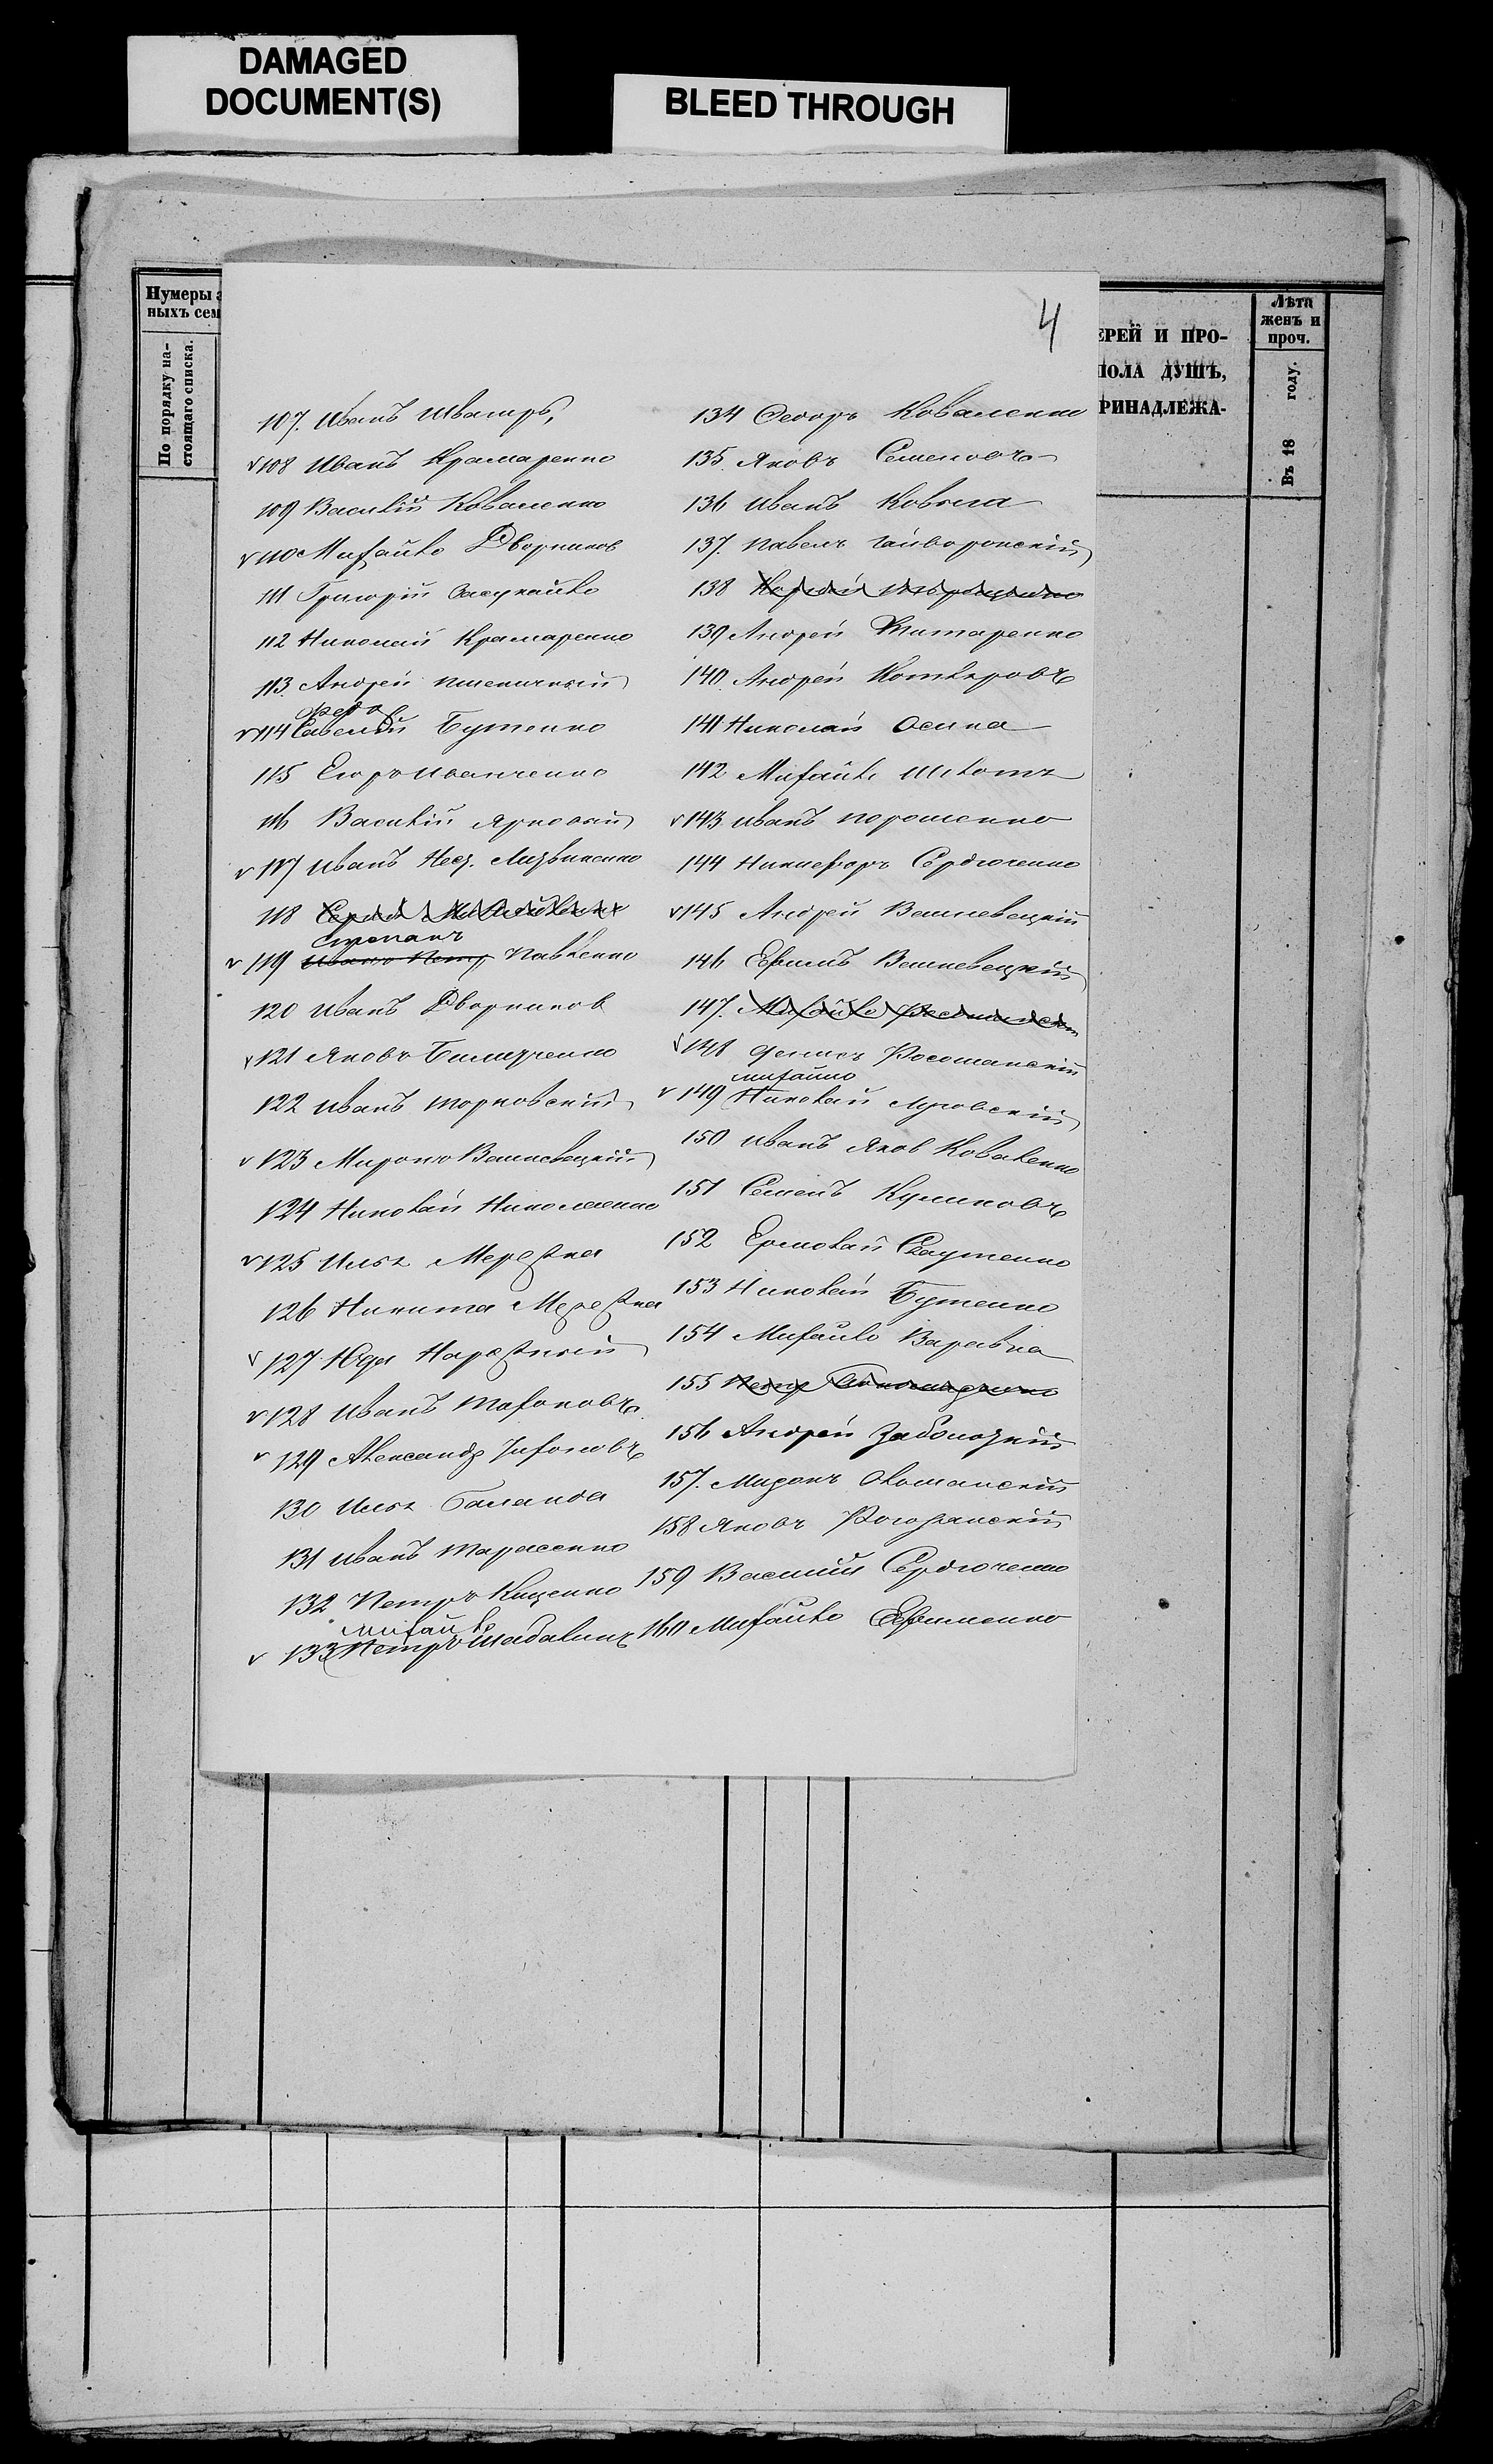 DAMAGED
DOCUMENT(S)
BLEED THROUGH
Нумеры
ныхъ сем
По порядку на-
стоящаго списка.
ЕРЕЙ И ПРО-
ПОЛА ДУШЪ,
РИНАДЛЕЖА-
Лѣта
женъ и
проч.
Въ 18 году.
4
107. Иванъ Швагиръ
v 108 Иванъ Крамаренко
109 Василій Коваленко
v 110 Михайло Дворников
111 Григорій
112 Николай Крамаренко
113. Андрей Пшеничный
v 114 Савелій Бутенко
115 Егоръ Иванченко
116 Василій Яровый
v 117 Иванъ
118
Степанъ
v 119 Иванъ Петр Павленко
120 Иванъ Дворников
v 121 Яковъ
122 Иванъ Торковскій
v 123 Миронъ Вишневецкій
124 Николай Николаенко
v 125 Илья Мережка
126 Никита Мережка
v 127 Нарежный
v 128 Иванъ Тафоновъ
v 129 Александр
130 Илья Баланда
131 Иванъ Тарасенко
132 Петръ Куценко
Михайло
v 133 Петръ Шабалинъ
134 Федоръ Коваленко
135 Яковъ Семеновъ
136 Иванъ Кобыла
137. Павелъ Гайворонскій
138
139 Андрей Титаренко
140. Андрей Котляровъ
141 Николай Осипа
142 Михайло
v 143. Иванъ Порошенко
144 Никифоръ Сердюченко
v 145 Андрей Вишневецкій
146 Ефимъ Вишневецкій
147. Михайло
v 148 Денисъ Росошанскій
михайло
v 149 Николай Луговскій
150 Иванъ Яков Коваленко
151 Семенъ Куликовъ
152 Ермолай
153 Николай Бутенко
154 Михайло Варавка
155 Петр
156 Андрей Заболозкій
157. Миронъ
158 Яковъ
159 Василій Сердюченко
160 Михайло Ефименко